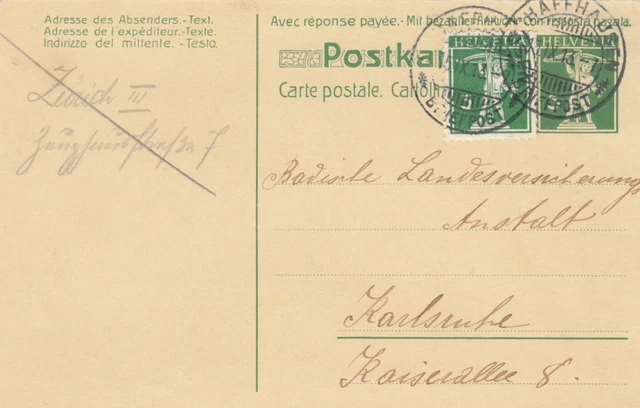 Adresse des Absenders.-Text.
Adresse de l'expéditeur.-Texte.
Indirizzo del mittente.-Testo.
Zürich III
7
Avec réponse payée.- Mit bezahlter Antwort - Con risposta pagata.
Postkar
Carte postale. Cartol
HELVETIA
HELVETIA
SCHAFFHAUSEN
BRIEFPOST
BRIEFPOST
Badische Landesversicherungs
Anstalt
Karlsruhe
Kaiserallee 8.